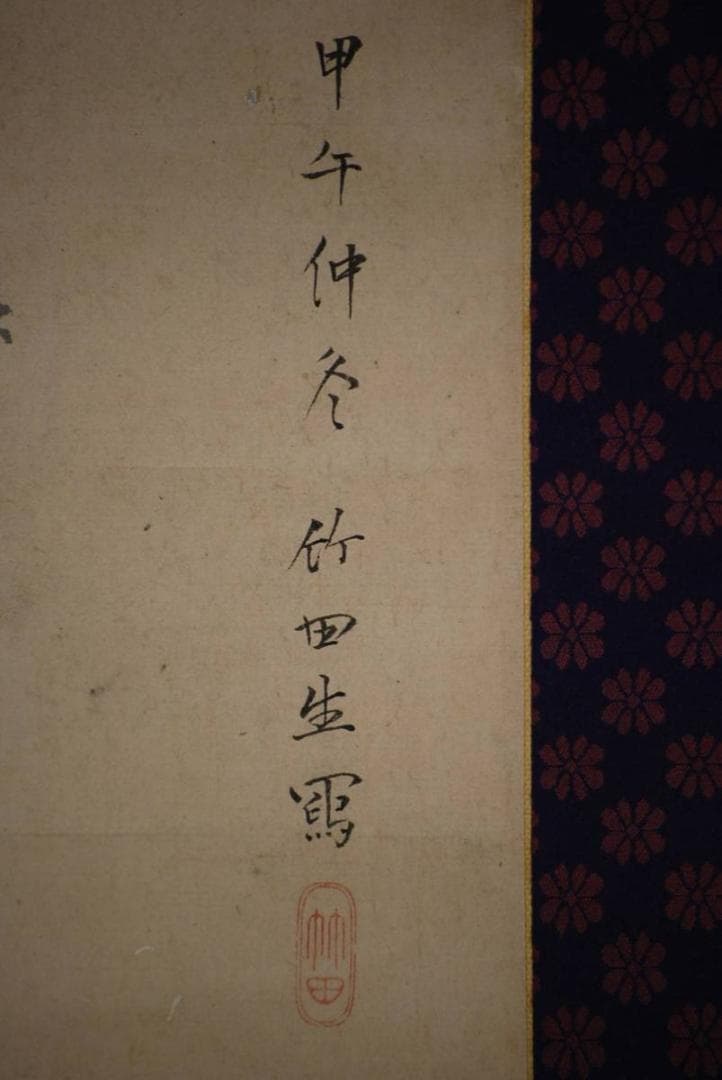 甲午仲冬 竹田生寫
竹田